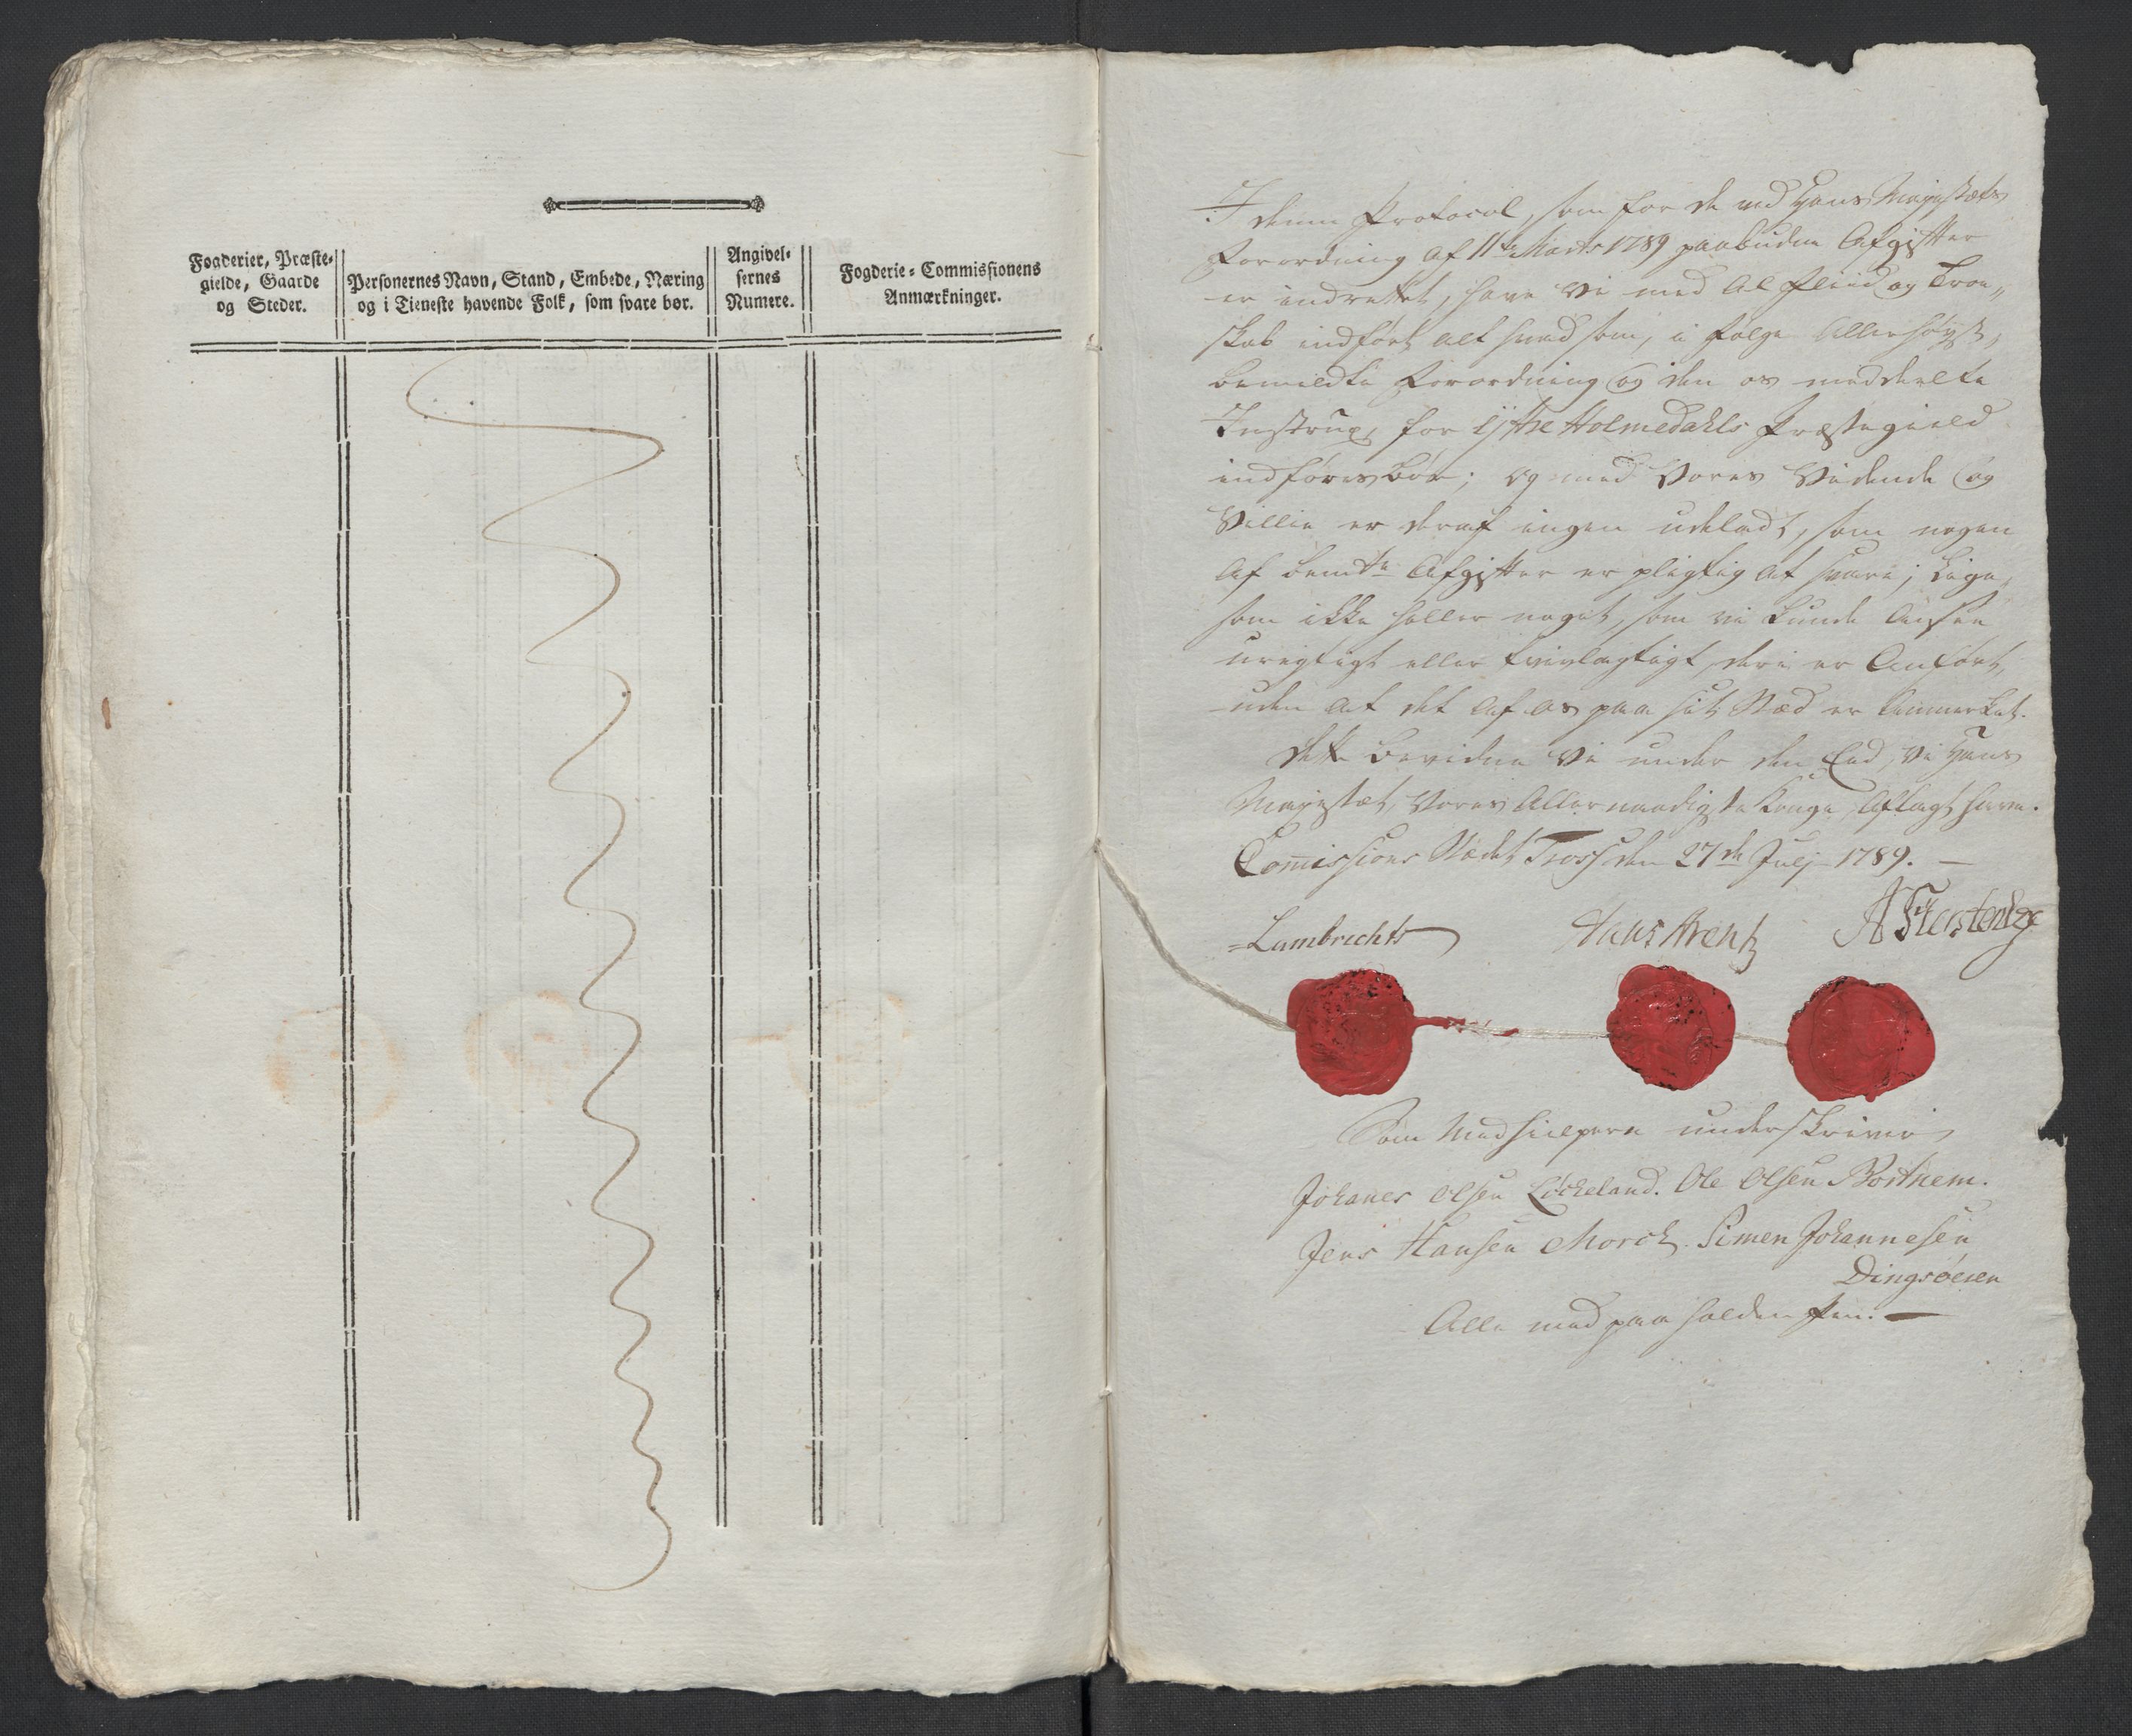 Fogderier, Præste-
gielde, Gaarde
og Steder.
Personernes Navn, Stand, Embede, Næring
og i Tieneste havende Folk, som svare bør.
Angivel-
sernes
Numere.
Fogderie-Commissionens
Anmærkninger.
I denne Protocol, som for de ved Hans Majestæts
Forordning af 11te Marts 1789 paabudne Afgifter
er indrettet, have Vi med al Fliid og Troe„
skab indført alt hvad som, i følge Allerhøyst„
bemeldte Forordning og den os meddeelte
Instrux, for Ÿttre Holmedahls Præstegield
indføres bør; og med Vores Vidende og
Villie er deraf ingen udeladt, som nogen
af bemte Afgifter er pligtig at svare; Lige„
som ikke heller noget, som vi kunde Ansee
urigtigt eller tvivlagtigt, deri er Anført,
uden at det af os paa sit Stæd er Anmerket.
Dette bevidne Vi under den Eed, Vi Hans
Majestæt, Vores Allernaadigste Konge, Aflagt have.
Comissions Stædet Tross den 27de Julj 1789. —
Lambrechts
Hans Arentz
A Fierstenberg
Som Medhielpere underskriver
Johanes Olsen Löckeland. Ole Olsen Bortnem.
Jens Hansen Morck. Simen Johannesen
Dingsøeren
Alle med paaholden Pen. —